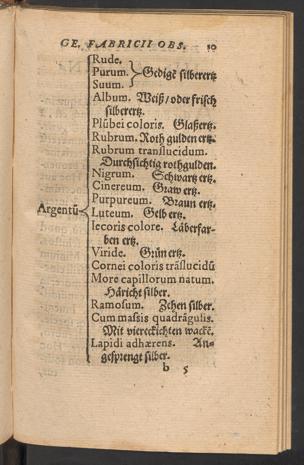 GE. FABRICII OBS. 10
Rude.
Purum. Gedigē silberertz
Suum.
Album. Weiß / oder frisch
silberertz.
Plūbei coloris. Glaßertz.
Rubrum. Roth gulden ertz.
Rubrum translucidum.
Durchsichtig rothgulden.
Nigrum. Schwartz ertz.
Cinereum. Graw ertz.
Purpureum. Braun ertz.
Argentū Luteum. Gelb ertz.
Iecoris colore. Läberfar-
ben ertz.
Viride. Grün ertz.
Cornei coloris trāslucidū
More capillorum natum.
Häricht silber.
Ramosum. Zehen silber.
Cum massis quadrāgulis.
Mit viereckichten wackē.
Lapidi adhærens. An-
gesprengt silber.
b 5